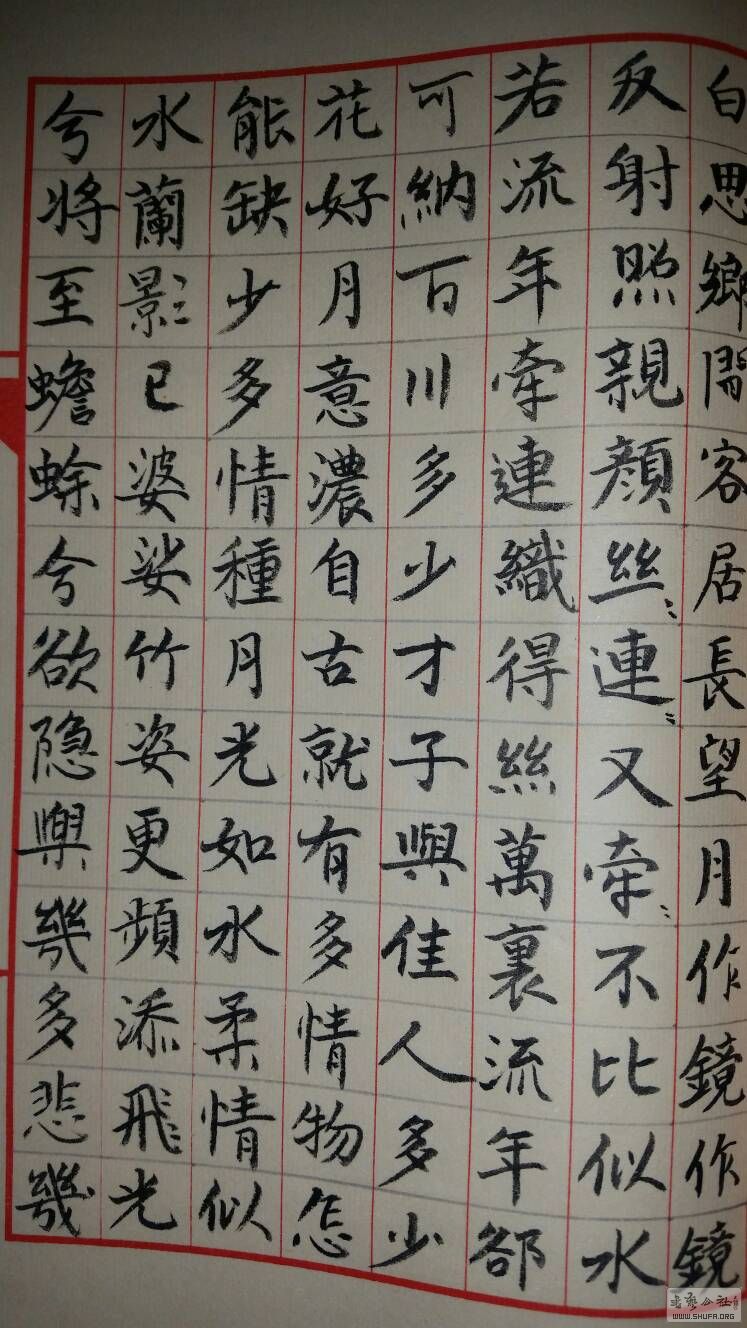 白思鄉閒客居長望月作鏡作鏡
反射照親顔丝〻連〻又牵〻不比似水
若流年牽連織得絲萬裏流年郤
可納百川多少才子與佳人多少
花好月意濃自古就有多情物怎
能缺少多情種月光如水柔情似
水蘭影〻已婆娑竹姿更頻添飛光
兮將至蟾蜍兮欲隐與幾多悲幾
書藝公社
WWW.SHUFA.ORG